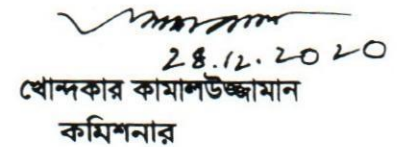 28.12.2020
খোন্দকার কামালউজ্জামান
কমিশনার